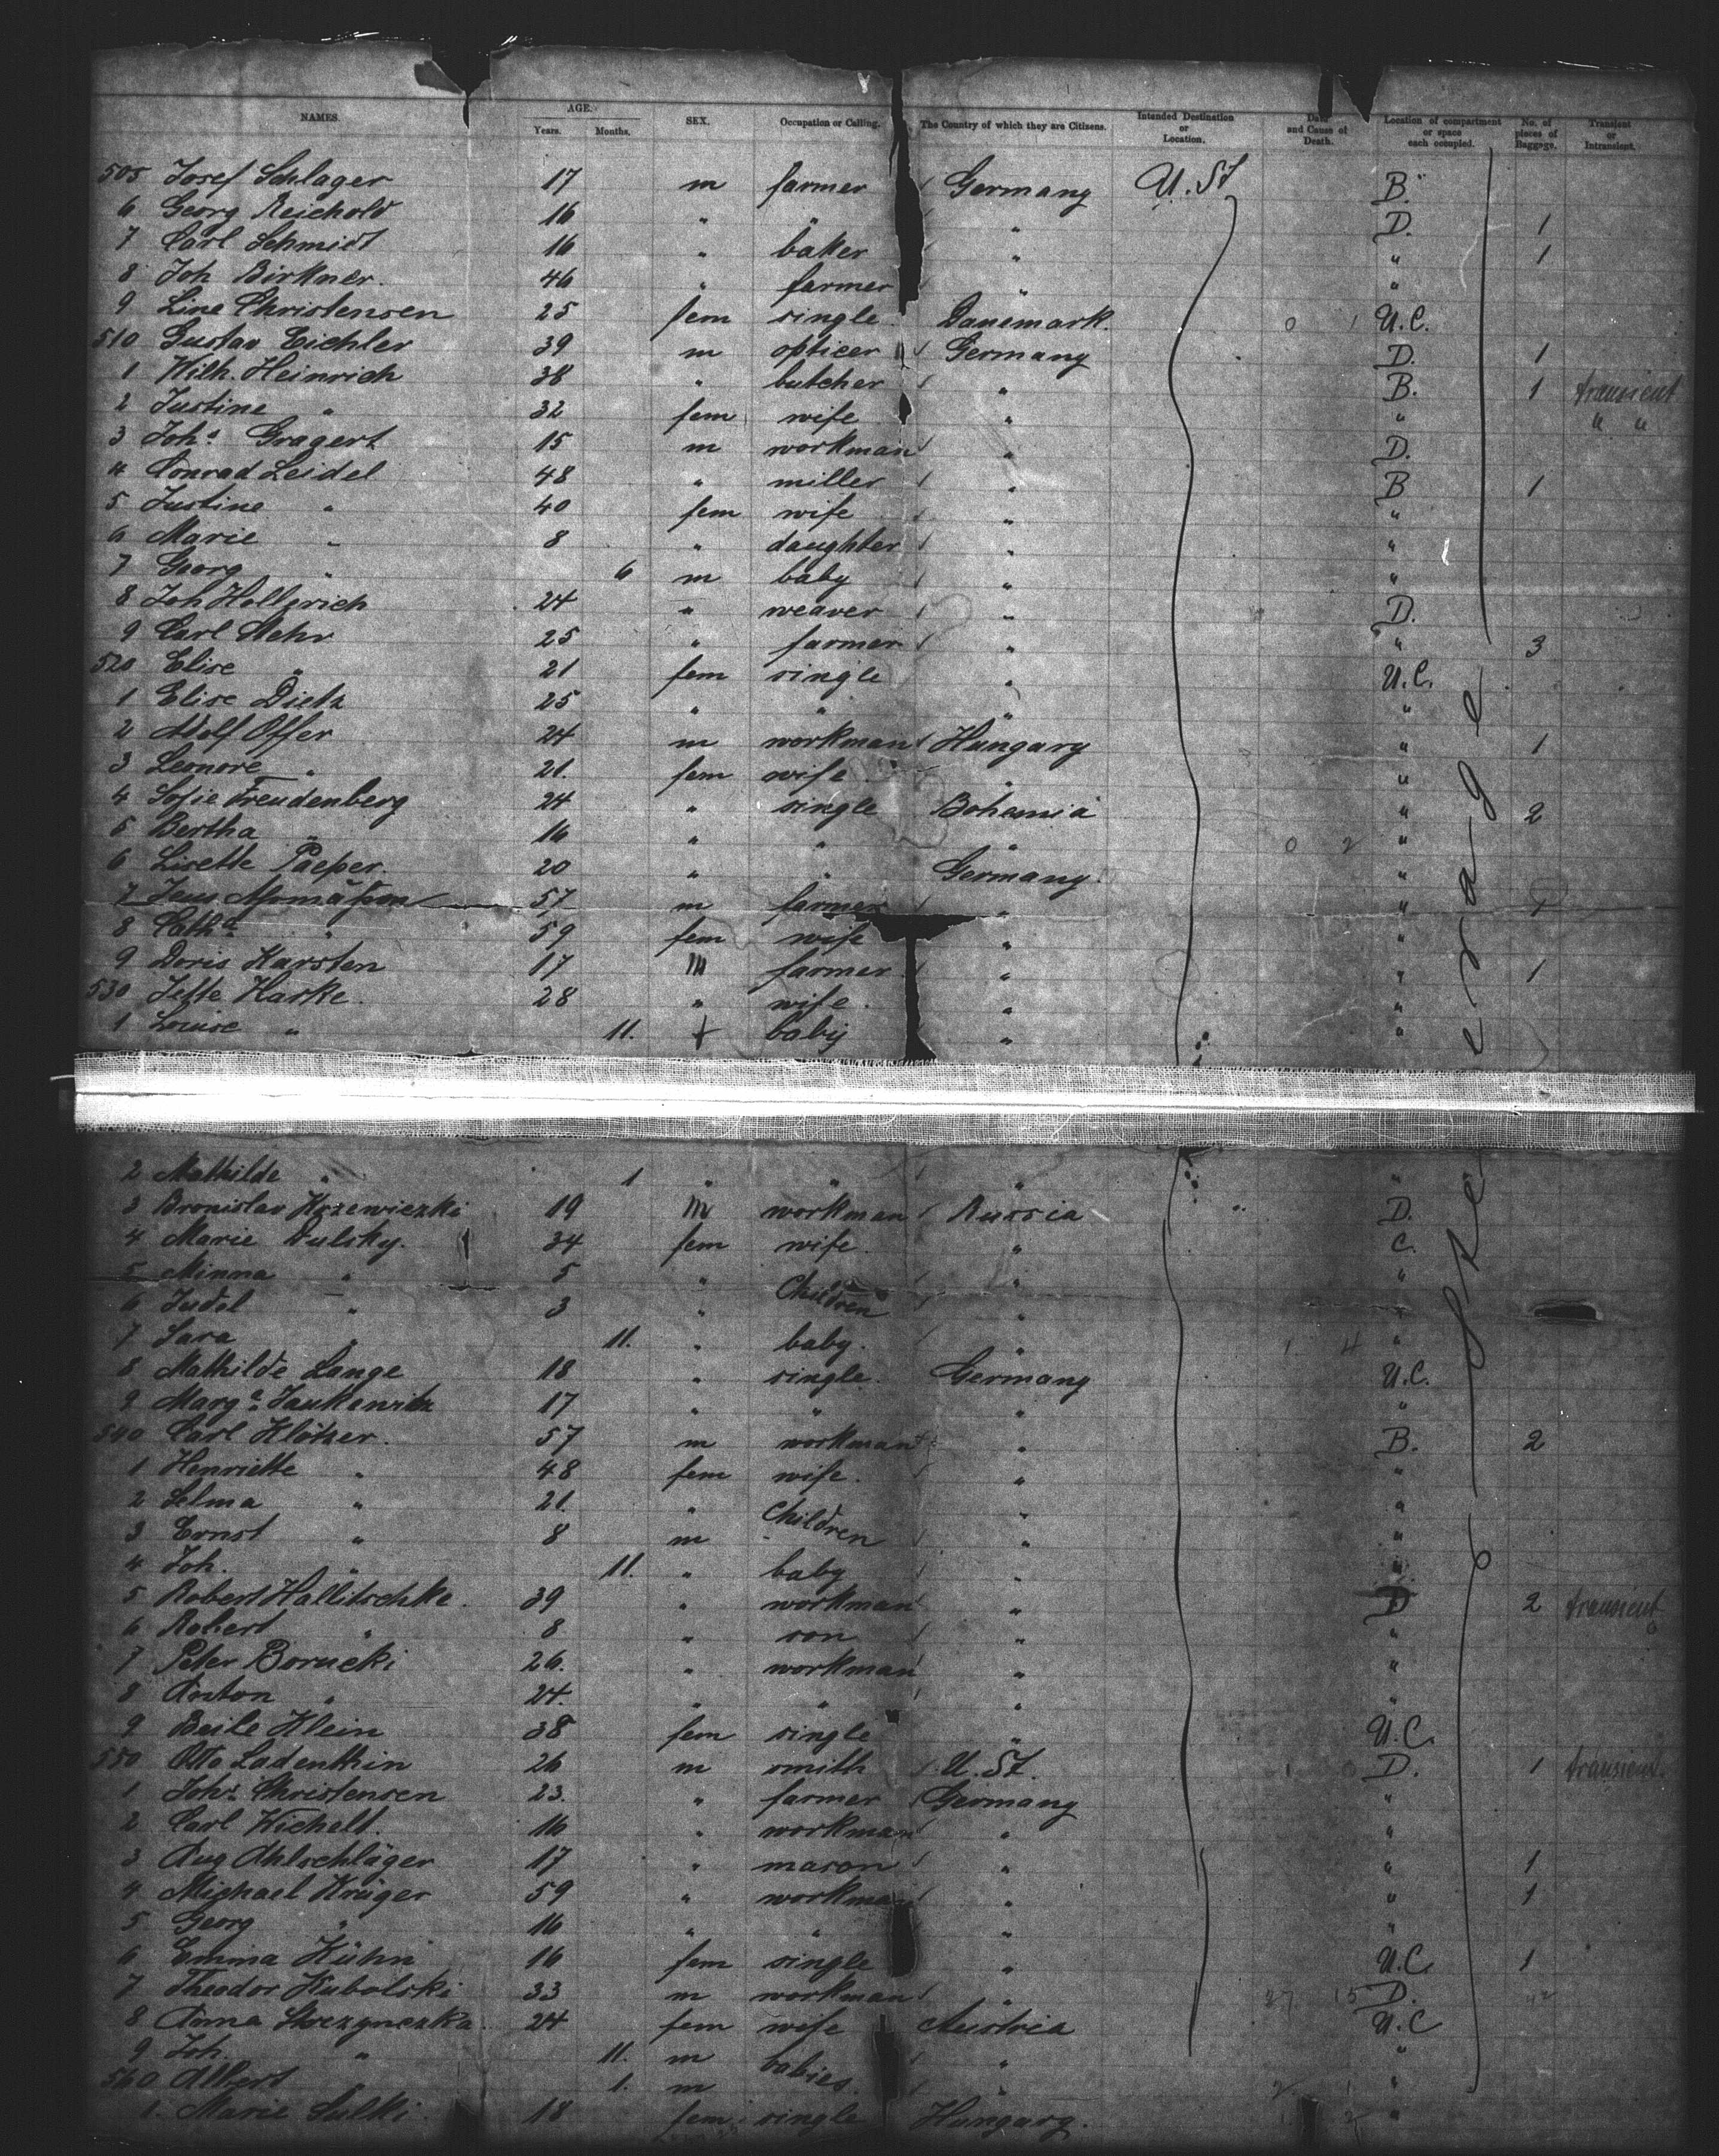 NAMES. AGE. Years. Months. SEX. Occupation or Calling. The Country of which they are Citizens. Intended Destination or Location. Date and Cause of Death. Location of compartment or space each occupied. No. of pieces of Baggage. Transient or Intransient.
505 Josef Schlager 17 m farmer Germany U. St B.
6 Georg Reichold 16 " " " D. 1
7 Carl Schmidt 16 " baker " " 1
8 Joh Birkner. 46 " farmer " "
9 Line Christensen 25 fem single Danemark. 0 1 U.C.
510 Gustav Eichler 39 m opticer Germany D. 1
1 Wilh. Heinrich 38 " butcher " B. 1 transient
2 Justine " 32 fem wife " " " "
3 Johs. Gragert 15 m workman " D.
4 Conrad Leidel 48 " miller " B 1
5 Justine " 40 fem wife " "
6 Marie " 8 " daughter " "
7 Georg " 6 m baby " "
8 Joh Hollerich 24 " weaver " D.
9 Carl Stehr 25 " farmer " " 3
520 Elise " 21 fem single " U.C.
1 Elise Dietz 25 " " " "
2 Adolf Offer 24 m workman Hungary " 1
3 Leonore " 21. fem wife " "
4 Sofie Freudenberg 24 " single Bohemia " 2
5 Bertha " 16 " " " 0 2 "
6 Lisette Paeper. 20 " " Germany. "
7 Jens 57 m farmer " " 1
8 Cathe. " 59 fem wife " "
9 Doris Karsten 17 m farmer " " 1
530 Jette Harke. 28 " wife. " "
1 Louise " 11. f baby " "
2 Mathilde " 1 " " " "
3 Bronislav Krzewiezki 19 m workman Russia D.
4 Marie Dulsky. 34 fem wife. " C.
5 Minna " 5 " Children " "
6 Judel " 3 " " "
7 Sara " 11. " baby. " 1 4 "
8 Mathilde Lange 18 " single. Germany U.C.
9 Marge. Jaukewitz 17 " " " "
540 Carl Klötzer. 57 m workman " B. 2
1 Henriette " 48 fem wife. " "
2 Selma " 21. " Children " "
3 Ernst " 8 m " "
4 Joh. " 11. " baby " "
5 Robert Hallitschke. 39 " workman " D 2 transient
6 Robert " 8 " son " "
7 Peter Borucki 26. " workman " "
8 Anton " 24. " " " "
9 Beile Klein 38 fem single " U.C.
550 Otto Ladenthin 26 m smith U. St. 1 0 D. 1 transient
1 Johs. Christensen 23. " farmer Germany "
2 Carl Wichelt. 16 " workman " "
3 Aug Ahlschläger 17 " mason " " 1
4 Michael Krüger 59 " workman " " 1
5 Georg " 16 " " " "
6 Emma Kühn 16 fem single " U.C. 1
7 Theodor Kubolski 33 m workman " 27 15 D.
8 Anna Skrzynezka. 24 fem wife Austria U.C
9 Joh. " 11. m babies. " "
560 Albert " 1. m " 2 1 "
1. Marie Sulki. 18 fem. single Hungary. 1 2 "
Steerage